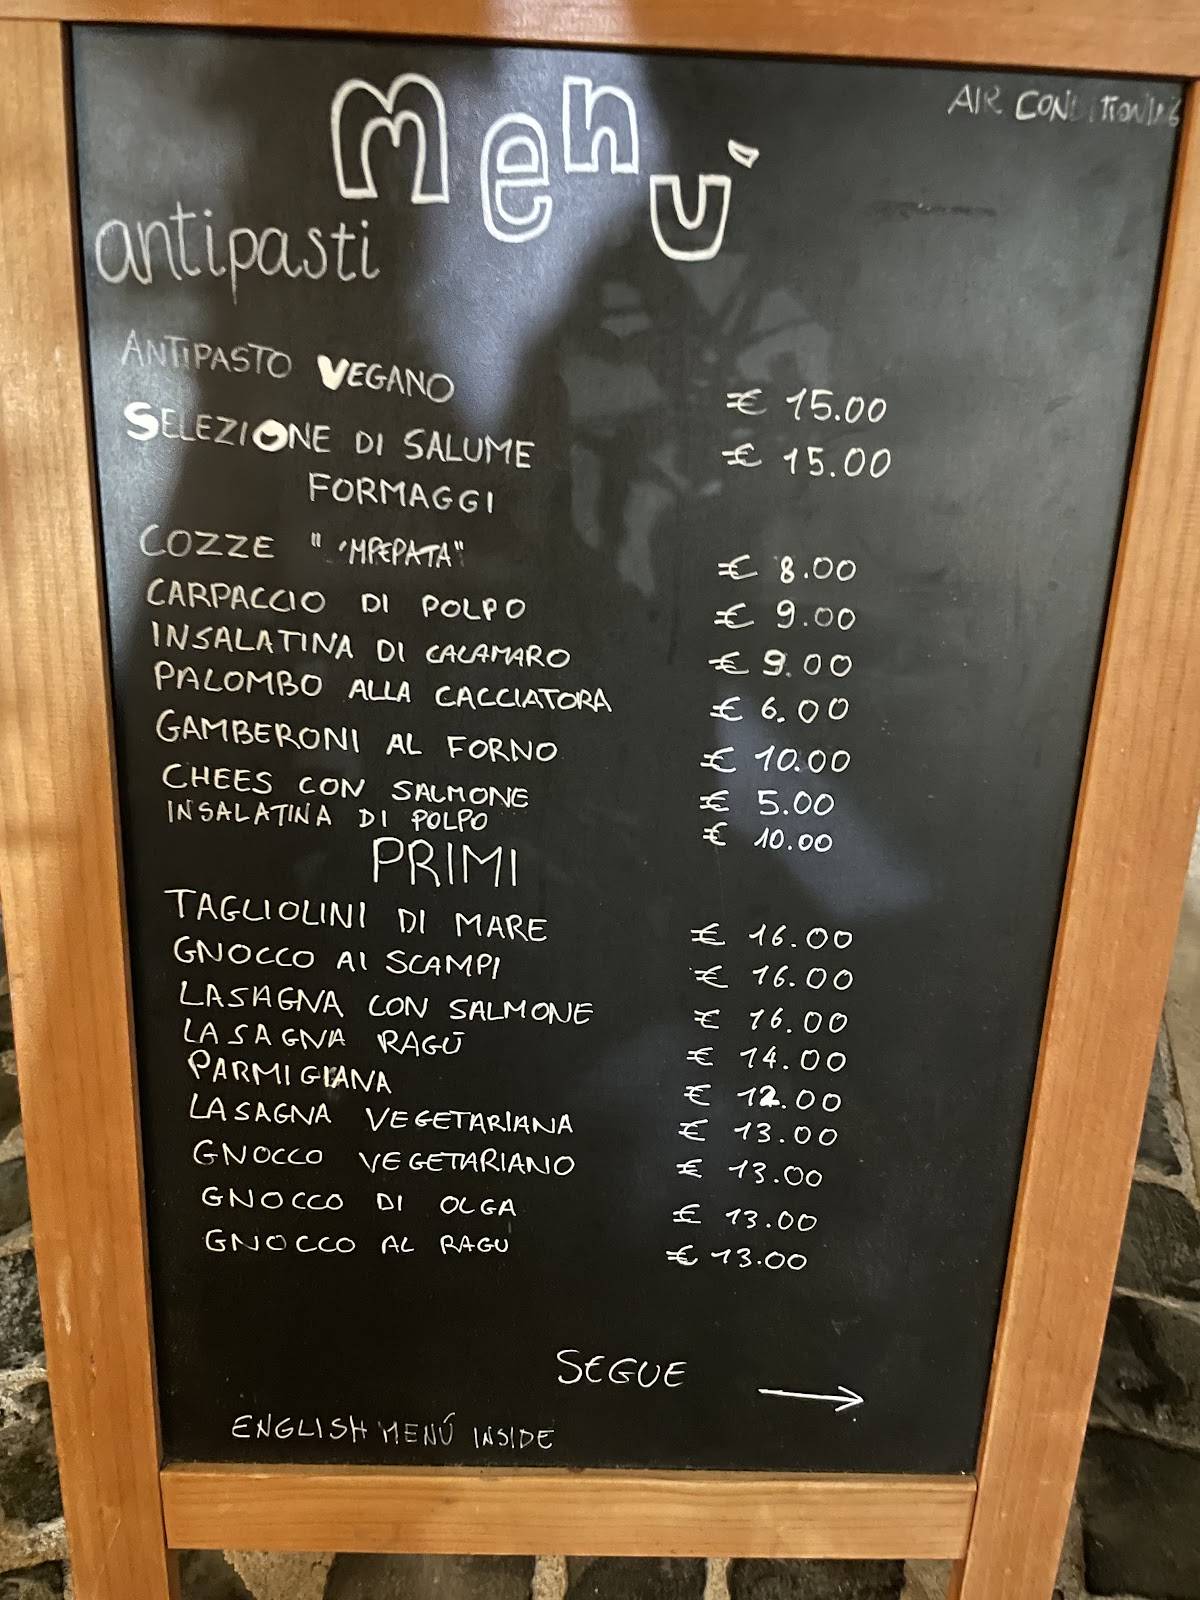 Menù
AIR CONDITIONING
antipasti
ANTIPASTO VEGANO € 15.00
SELEZIONE DI SALUME € 15.00
FORMAGGI
COZZE "'MPEPATA" € 8.00
CARPACCIO DI POLPO € 9.00
INSALATINA DI CALAMARO € 9.00
PALOMBO ALLA CACCIATORA € 6.00
GAMBERONI AL FORNO € 10.00
CHEES CON SALMONE € 5.00
INSALATINA DI POLPO € 10.00
PRIMI
TAGLIOLINI DI MARE € 16.00
GNOCCO AI SCAMPI € 16.00
LASAGNA CON SALMONE € 16.00
LASAGNA RAGÙ € 14.00
PARMIGIANA € 12.00
LASAGNA VEGETARIANA € 13.00
GNOCCO VEGETARIANO € 13.00
GNOCCO DI OLGA € 13.00
GNOCCO AL RAGU € 13.00
SEGUE →
ENGLISH MENÚ INSIDE